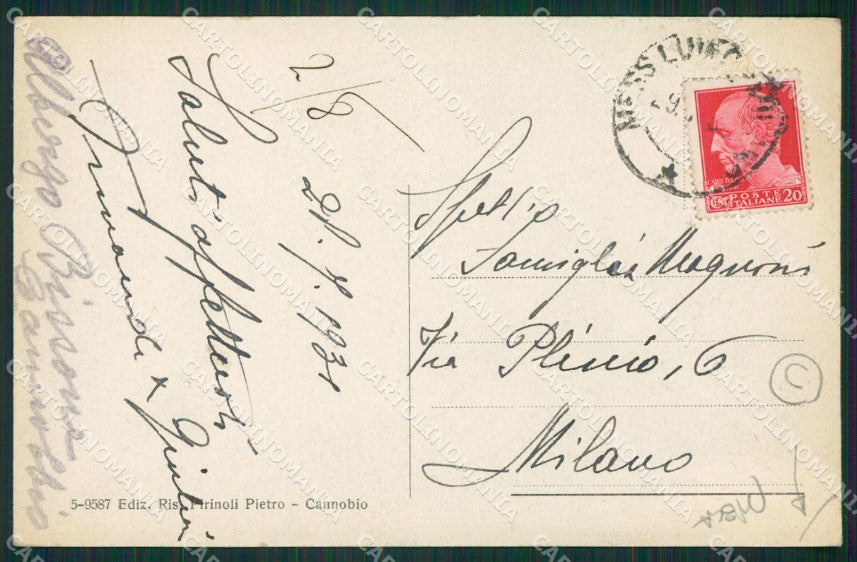 2/8
21.8.1931
Saluti affettuosi
Armando & Giulia
Albergo
Cannobio
Spett/e
Famiglia Magnoni
Via Plinio, 6
Milano
POSTE
ITALIANE
CENT. 20
5-9587 Ediz. Ris. Pirinoli Pietro - Cannobio
CARTOLINOMANIA